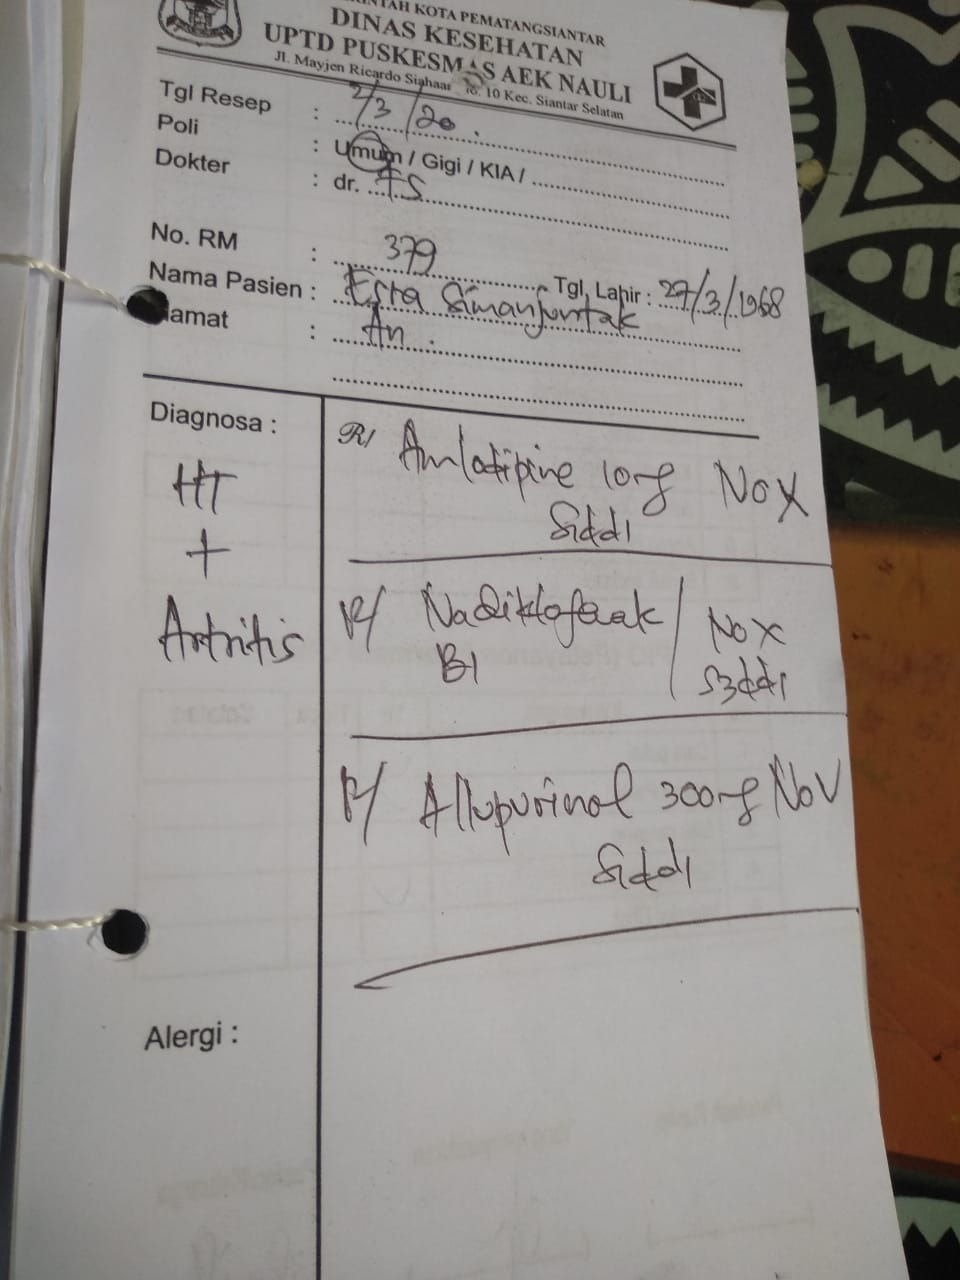 KOTA PEMATANGSIANTAR
DINAS KESEHATAN
UPTD PUSKESMAS AEK NAULI
Jl. Mayjen Ricardo Siahaan No. 10 Kec. Siantar Selatan
Tgl Resep : 2/3/20.
Poli : Umum / Gigi / KIA /
Dokter : dr. FS
No. RM : 379
Nama Pasien : Esra Simanjuntak Tgl, Lahir : 27/3/1968
lamat : An.
Diagnosa :
HT
+
Artritis
R/ Amlodipine 10mg No X
S1dd1
R/ Nadiklofenak / No X
B1 S3dd1
R/ Allupurinol 300mg No V
S1dd1
Alergi :